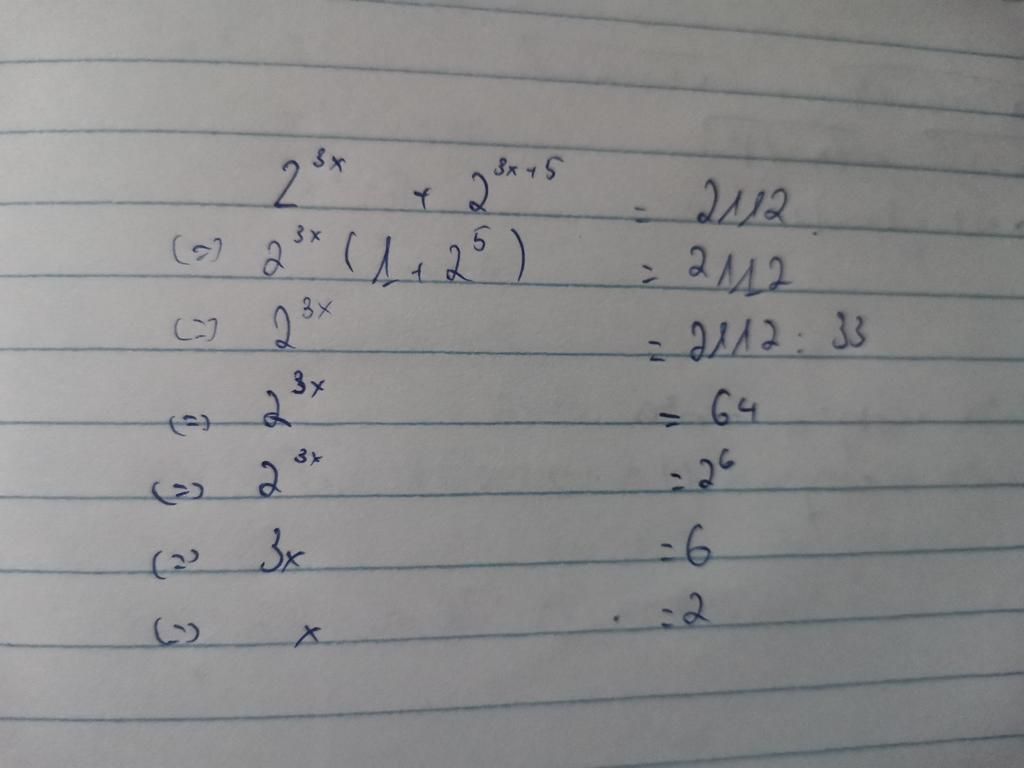 2^{3x} + 2^{3x+5} = 2112
(=) 2^{3x} (1 + 2^5) = 2112
(=) 2^{3x} = 2112 : 33
(=) 2^{3x} = 64
(=) 2^{3x} = 2^6
(=) 3x = 6
(=) x = 2